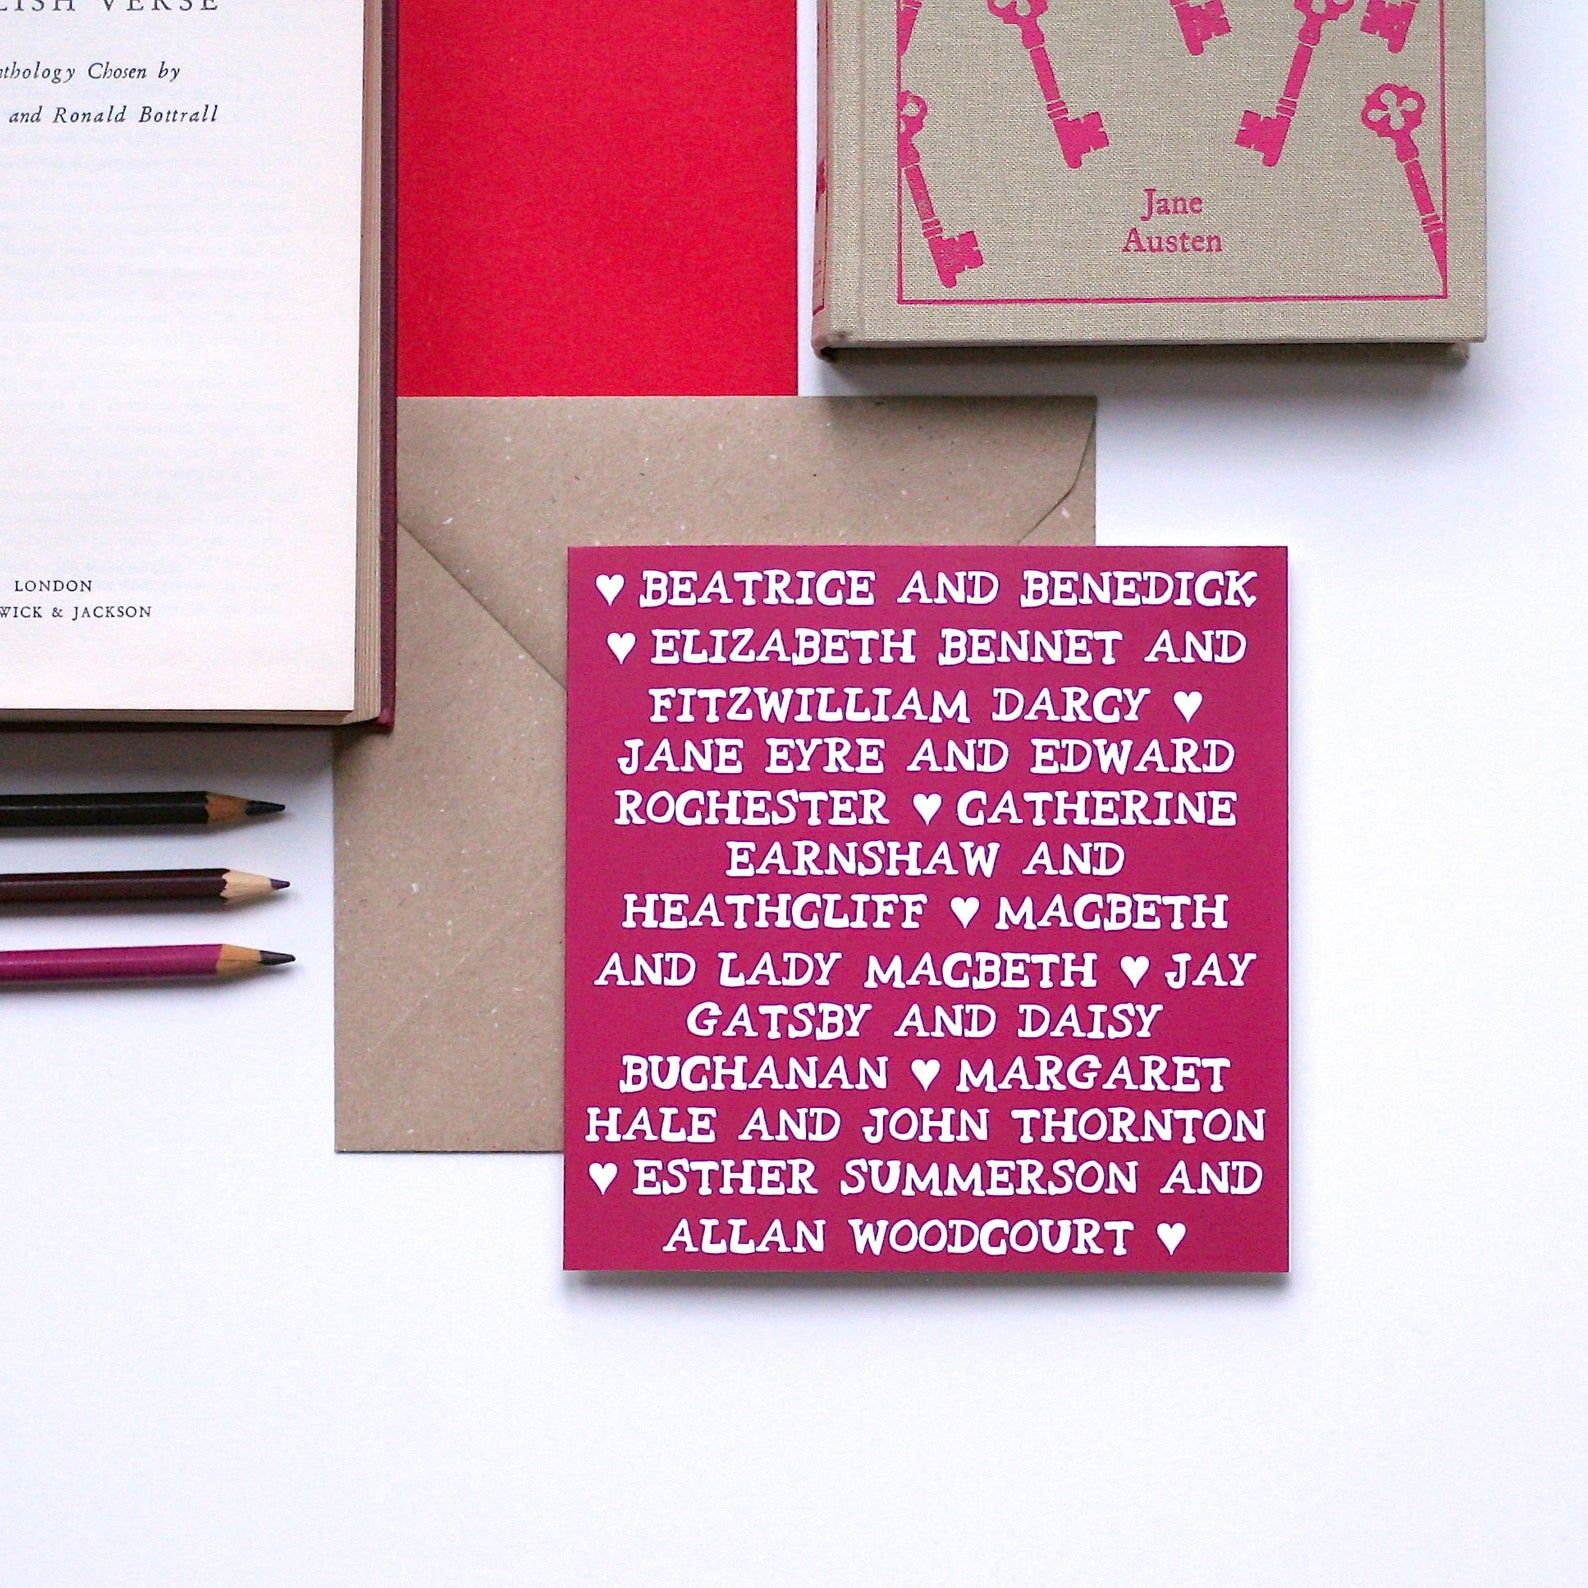 VERSE
Chosen by
and Ronald Bottrall
LONDON
& JACKSON
Jane
Austen
♥ BEATRICE AND BENEDICK
♥ ELIZABETH BENNET AND
FITZWILLIAM DARCY ♥
JANE EYRE AND EDWARD
ROCHESTER ♥ CATHERINE
EARNSHAW AND
HEATHCLIFF ♥ MACBETH
AND LADY MACBETH ♥ JAY
GATSBY AND DAISY
BUCHANAN ♥ MARGARET
HALE AND JOHN THORNTON
♥ ESTHER SUMMERSON AND
ALLAN WOODCOURT ♥